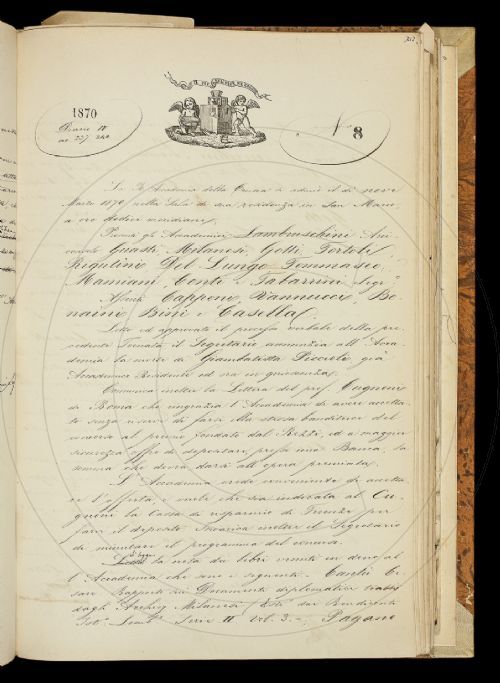 1870
Diario IV
ac. 237 240
N.º 8
La R. Accademia della Crusca si adunò il dì nove
Marzo 1870, nella Sala di sua residenza in San Marco,
a ore dodici meridiane.
Presenti gli Accademici Lambruschini Arci-
consolo Guasti, Milanesi, Gotti, Tortoli,
Rigutini, Del Lungo, Tommaseo,
Mamiani, Conti e Tabarrini Segr.
Assenti Capponi, Vannucci, Bo-
naini, Bini e Casella.
Letto ed approvato il processo verbale della pre-
cedente Tornata, il Segretario annunzia all'Acca-
demia la morte di Giambatista Piccioli già
Accademico Residente ed ora in quiescenza.
Comunica inoltre la Lettera del prof. Cugnoni
di Roma che ringrazia l'Accademia di avere accetta-
to senza riserve di farsi essa stessa banditrice del
concorso al premio fondato dal Rezzi, ed a maggior
sicurezza offre di depositare presso una Banca, la
somma che dovrà darsi all'opera premiata.
L'Accademia crede conveniente di accetta-
re l'offerta, e vuole che sia indicata al Cu-
gnoni la Cassa di risparmio di Firenze per
farvi il deposito. Incarica inoltre il Segretario
di minutare il programma del concorso.
la nota dei libri venuti in dono al
l'Accademia che sono i seguenti. Cantù Ce-
sare Rapporti sui Documenti diplomatici
dagli Archivj Milanesi (Estr. dai Rendiconti
Ist. Lomb. Serie II Vol. 3. —; Pagano